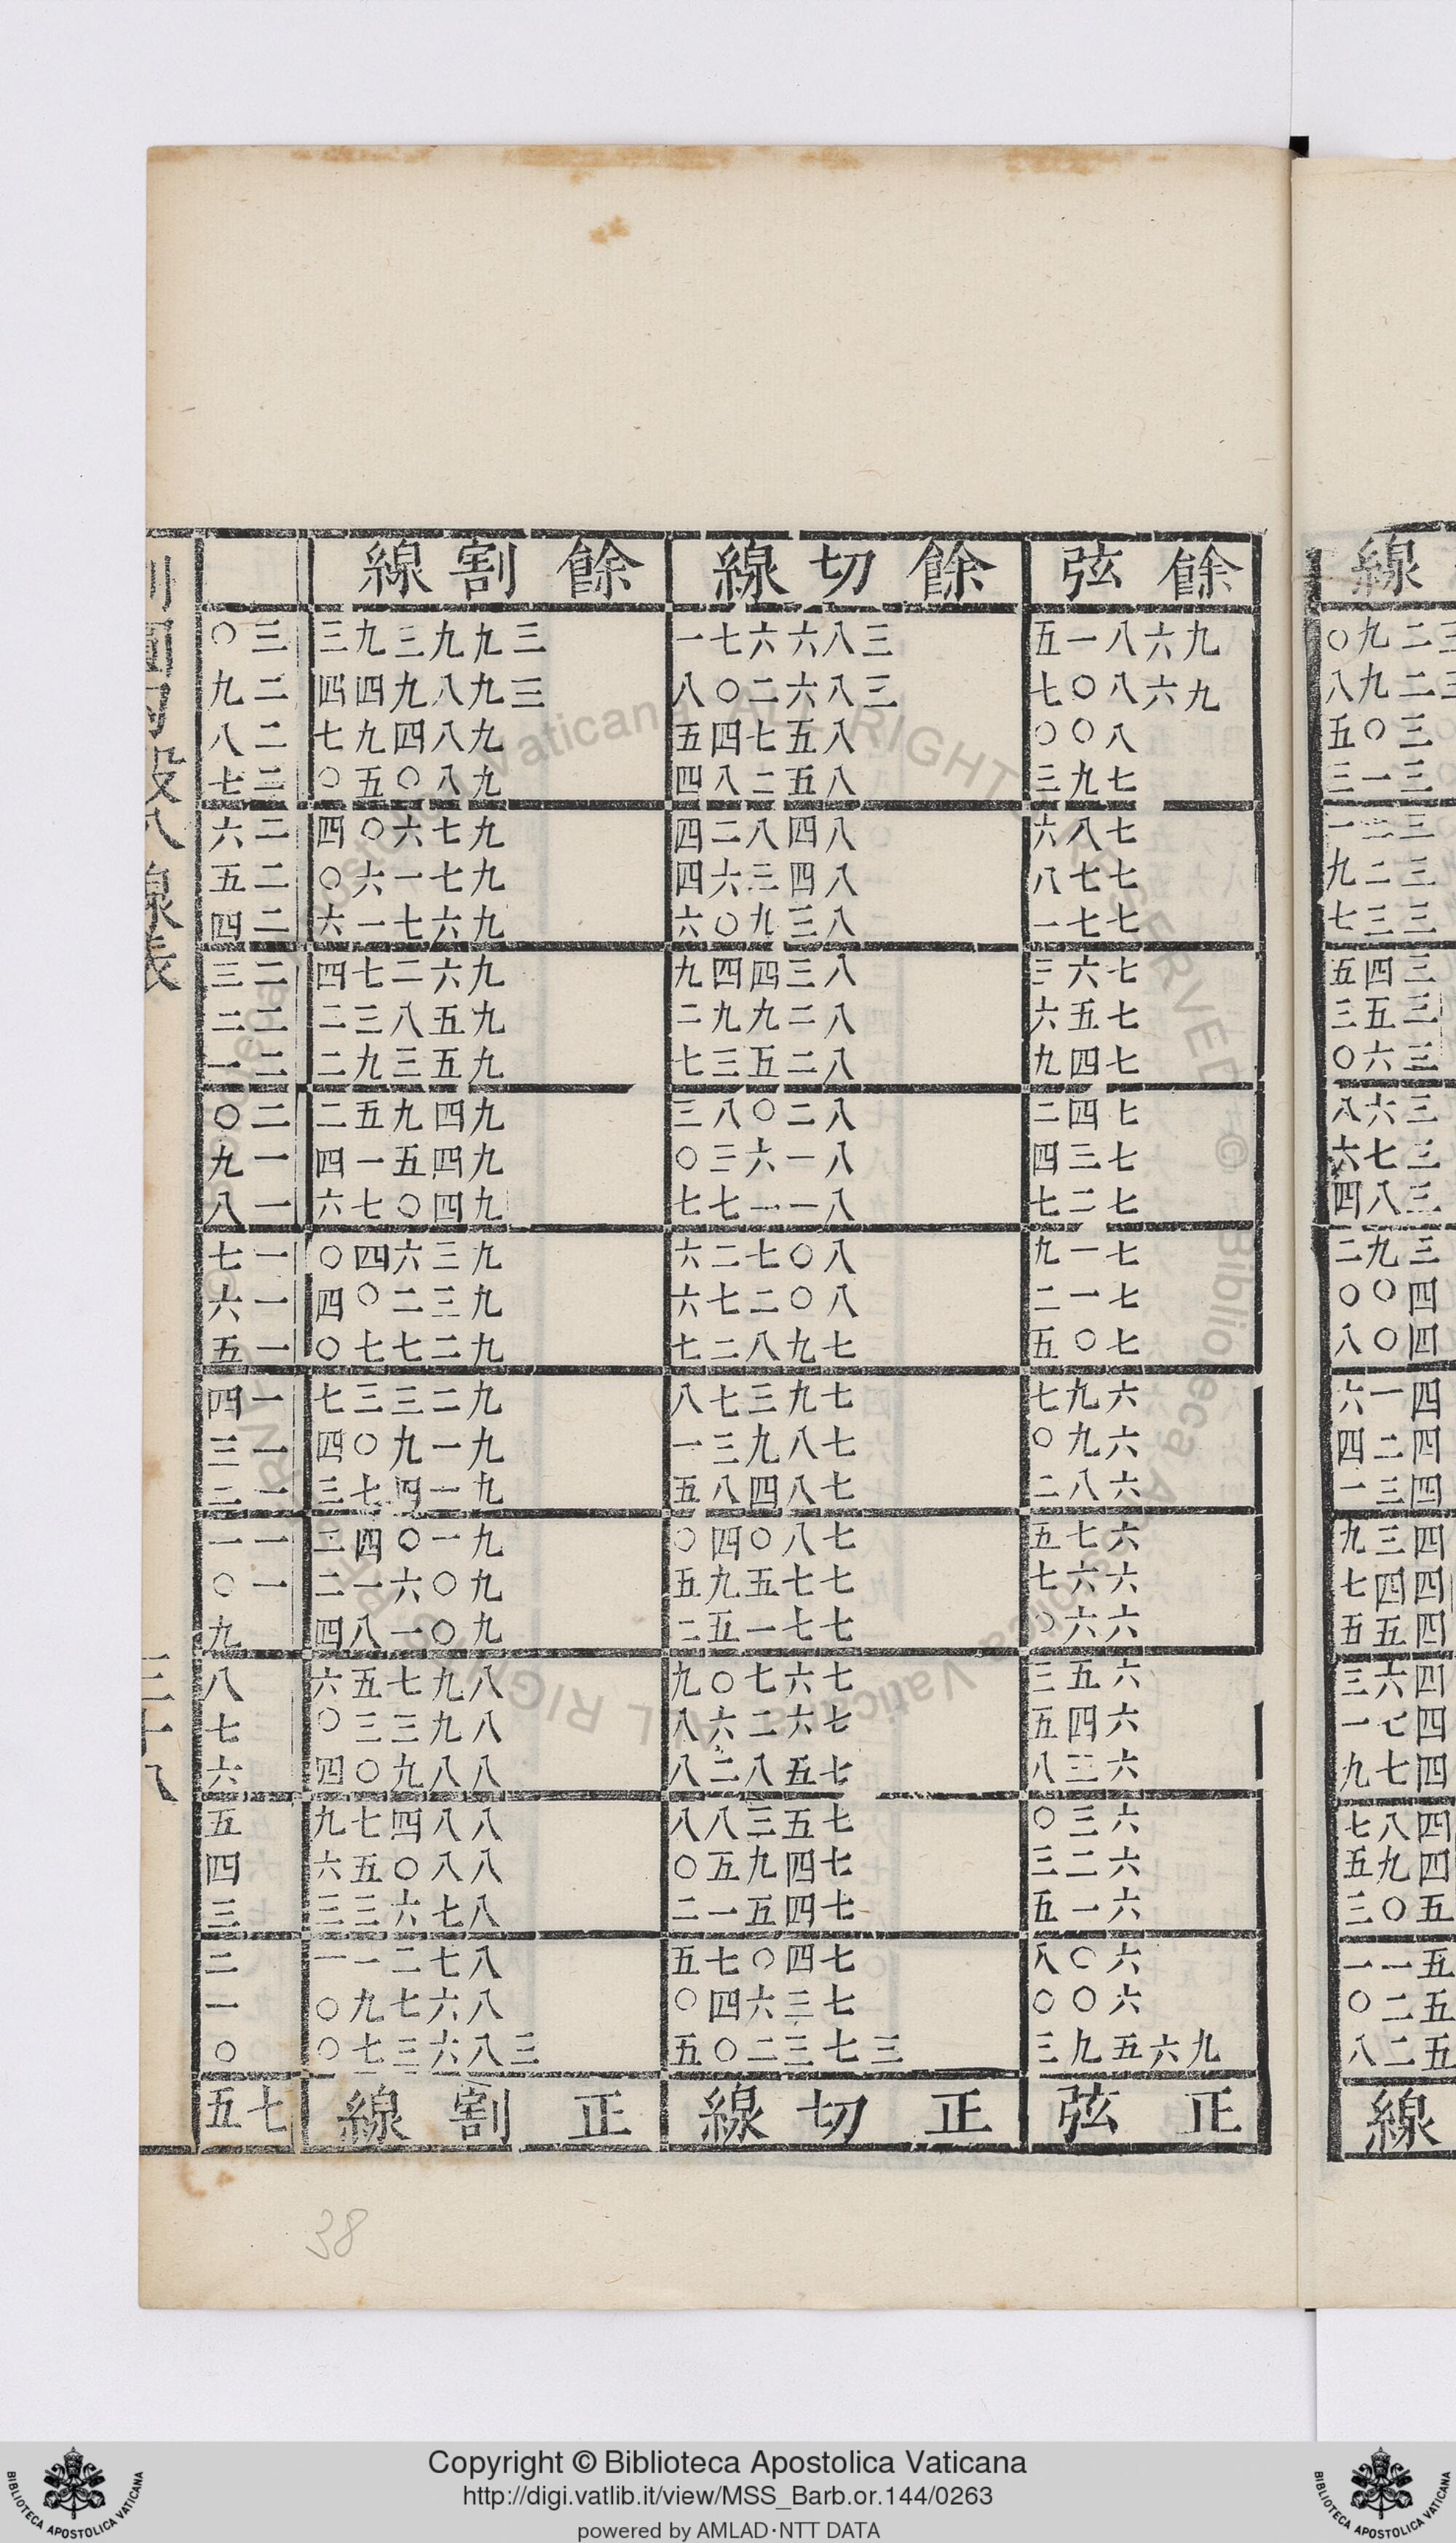 線
餘弦 餘切線 餘割線
三二九〇 九六八一五 三八六六七一 三九九三九三 三〇
三二九八 九六八〇七 三八六二〇八 三九八九四四 二九
三〇五 八〇〇 八五七四五 九八四九七 二八
三一三 七九三 八五二八四 九八〇五〇 二七
三二一 七八六 八四八二四 九七六〇四 二六
三二九 七七八 八四三六四 九七一六〇 二五
三三七 七七一 八三九〇六 九六七一六 二四
三四五 七六三 八三四四九 九六二七四 二三
三五三 七五六 八二九九二 九五八三二 二二
三六〇 七四九 八二五三七 九五三九二 二一
三六八 七四二 八二〇八三 九四九五二 二〇
三七六 七三四 八一六三〇 九四五一四 一九
三八四 七二七 八一一七七 九四〇七六 一八
三九二 七一九 八〇七二六 九三六四〇 一七
四〇〇 七一二 八〇二七六 九三二〇四 一六
四〇八 七〇五 七九八二七 九二七七〇 一五
四一六 六九七 七九三七八 九二三三七 一四
四二四 六九〇 七八九三一 九一九〇四 一三
四三一 六八二 七八四八五 九一四七三 一二
四三九 六七五 七八〇四〇 九一〇四二 一一
四四七 六六七 七七五九五 九〇六一二 一〇
四五五 六六〇 七七一五二 九〇一八四 九
四六三 六五三 七六七〇九 八九七五六 八
四七一 六四五 七六二六八 八九三三〇 七
四七九 六三八 七五八二八 八八九〇四 六
四八七 六三〇 七五三八八 八八四七九 五
四九五 六二三 七四九五〇 八八〇五六 四
五〇三 六一五 七四五一二 八七六三三 三
五一一 六〇八 七四〇七五 八七二一一 二
五二〇 六〇〇 七三六四〇 八六七九〇 一
五二八 九六五九三 三七三二〇五 三八六三七〇 〇
線
正弦 正切線 正割線 七五
八線表
三十八
38
Copyright © Biblioteca Apostolica Vaticana
http://digi.vatlib.it/view/MSS_Barb.or.144/0263
powered by AMLAD·NTT DATA
BIBLIOTECA APOSTOLICA VATICANA
BIBLIOTECA APOSTOLICA VATICANA